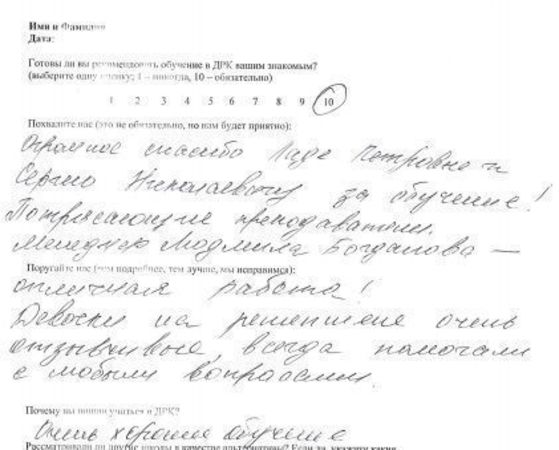 Имя и Фамилия
Дата:
Готовы ли вы рекомендовать обучение в ДРК вашим знакомым?
(выберите одну оценку; 1 – никогда, 10 – обязательно)
1 2 3 4 5 6 7 8 9 10
Похвалите нас (это не обязательно, но нам будет приятно):
Огромное спасибо Ладе Петровне и
Сергею Николаевичу за обучение!
Потрясающие преподаватели.
Менеджер Людмила Богданова —
Поругайте нас (чем подробнее, тем лучше, мы исправимся):
отличная работа!
Девочки на решепшене очень
отзывчивые, всегда помогали
с любыми вопросами.
Почему вы пошли учиться в ДРК?
Очень хорошее обучение
Рассматривали ли другие школы в качестве альтернативы? Если да, укажите какие